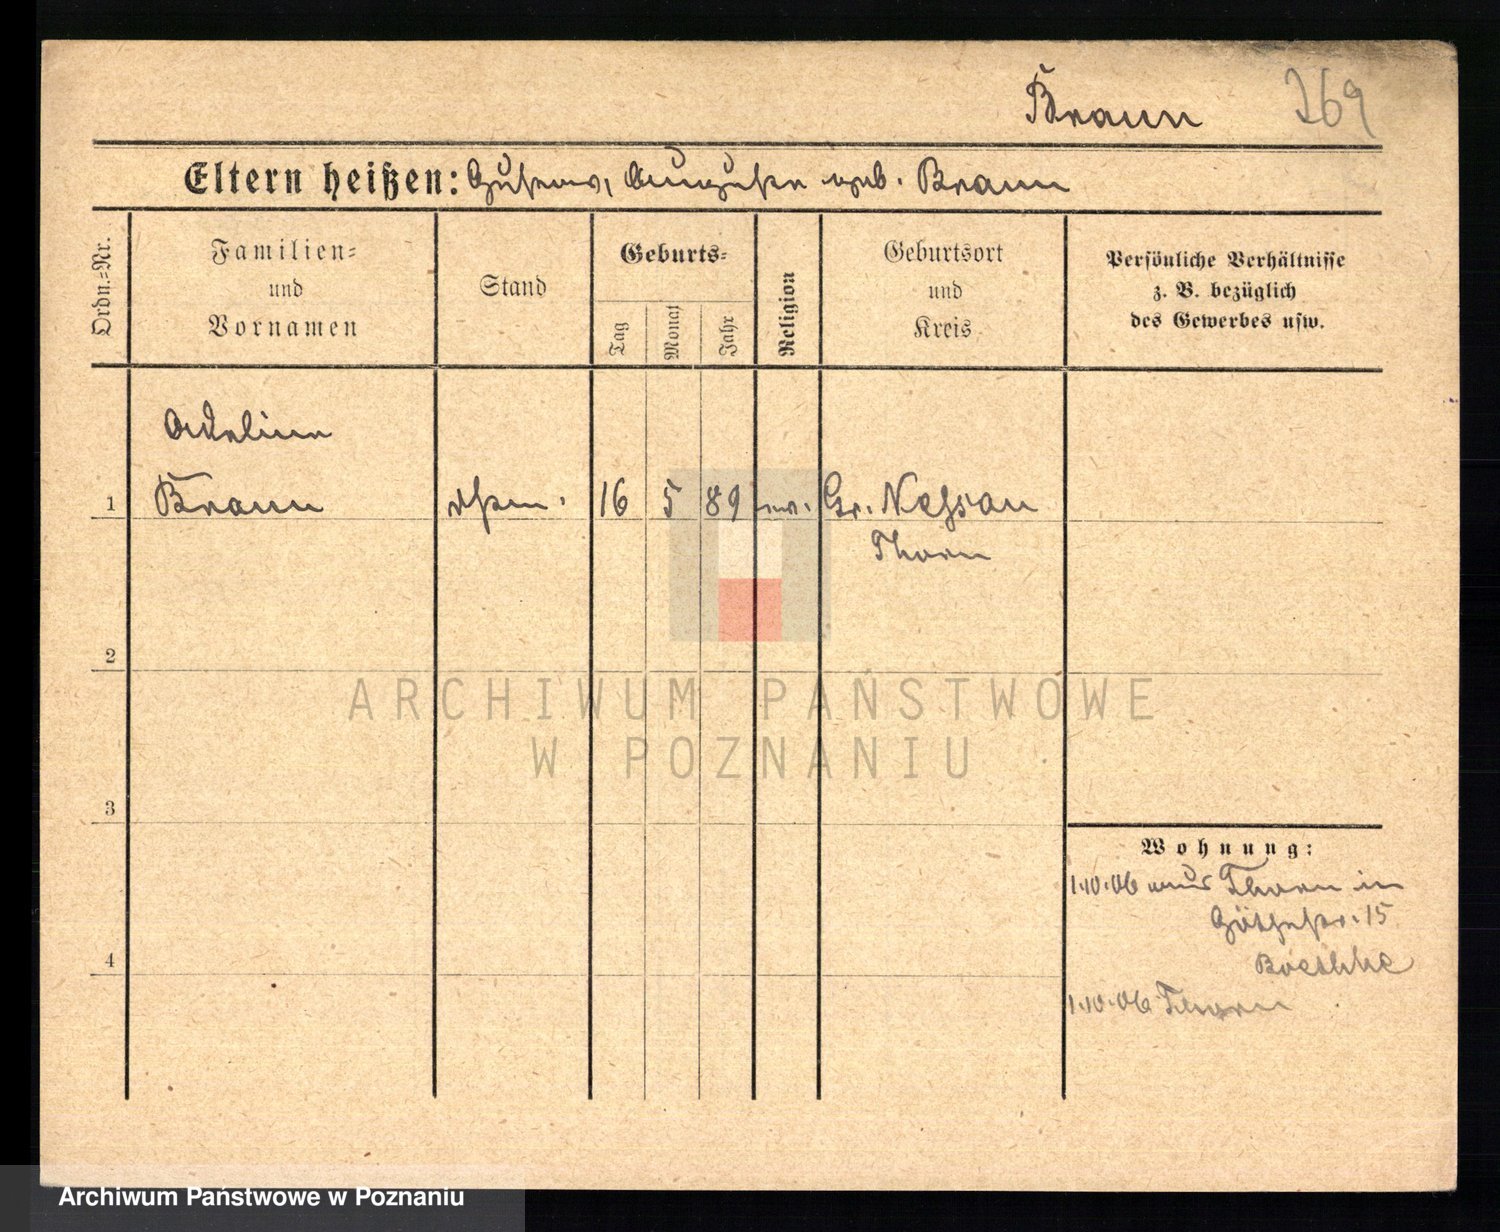 Braun 269
Eltern heißen: Gustav, Auguste geb. Braun
Ordn.-Nr.
Familien-
und
Vornamen
Stand
Geburts-
Tag
Monat
Jahr
Religion
Geburtsort
und
Kreis
Persönliche Verhältnisse
z. B. bezüglich
des Gewerbes usw.
Adeline
1 Braun 16 5 89 ev. Gr. Nessau
Thorn
2
3
4
Wohnung:
1.10.06 aus Thorn in
Göthestr. 15
Boethke
1.10.06 Thorn
ARCHIWUM PAŃSTWOWE
W POZNANIU
Archiwum Państwowe w Poznaniu